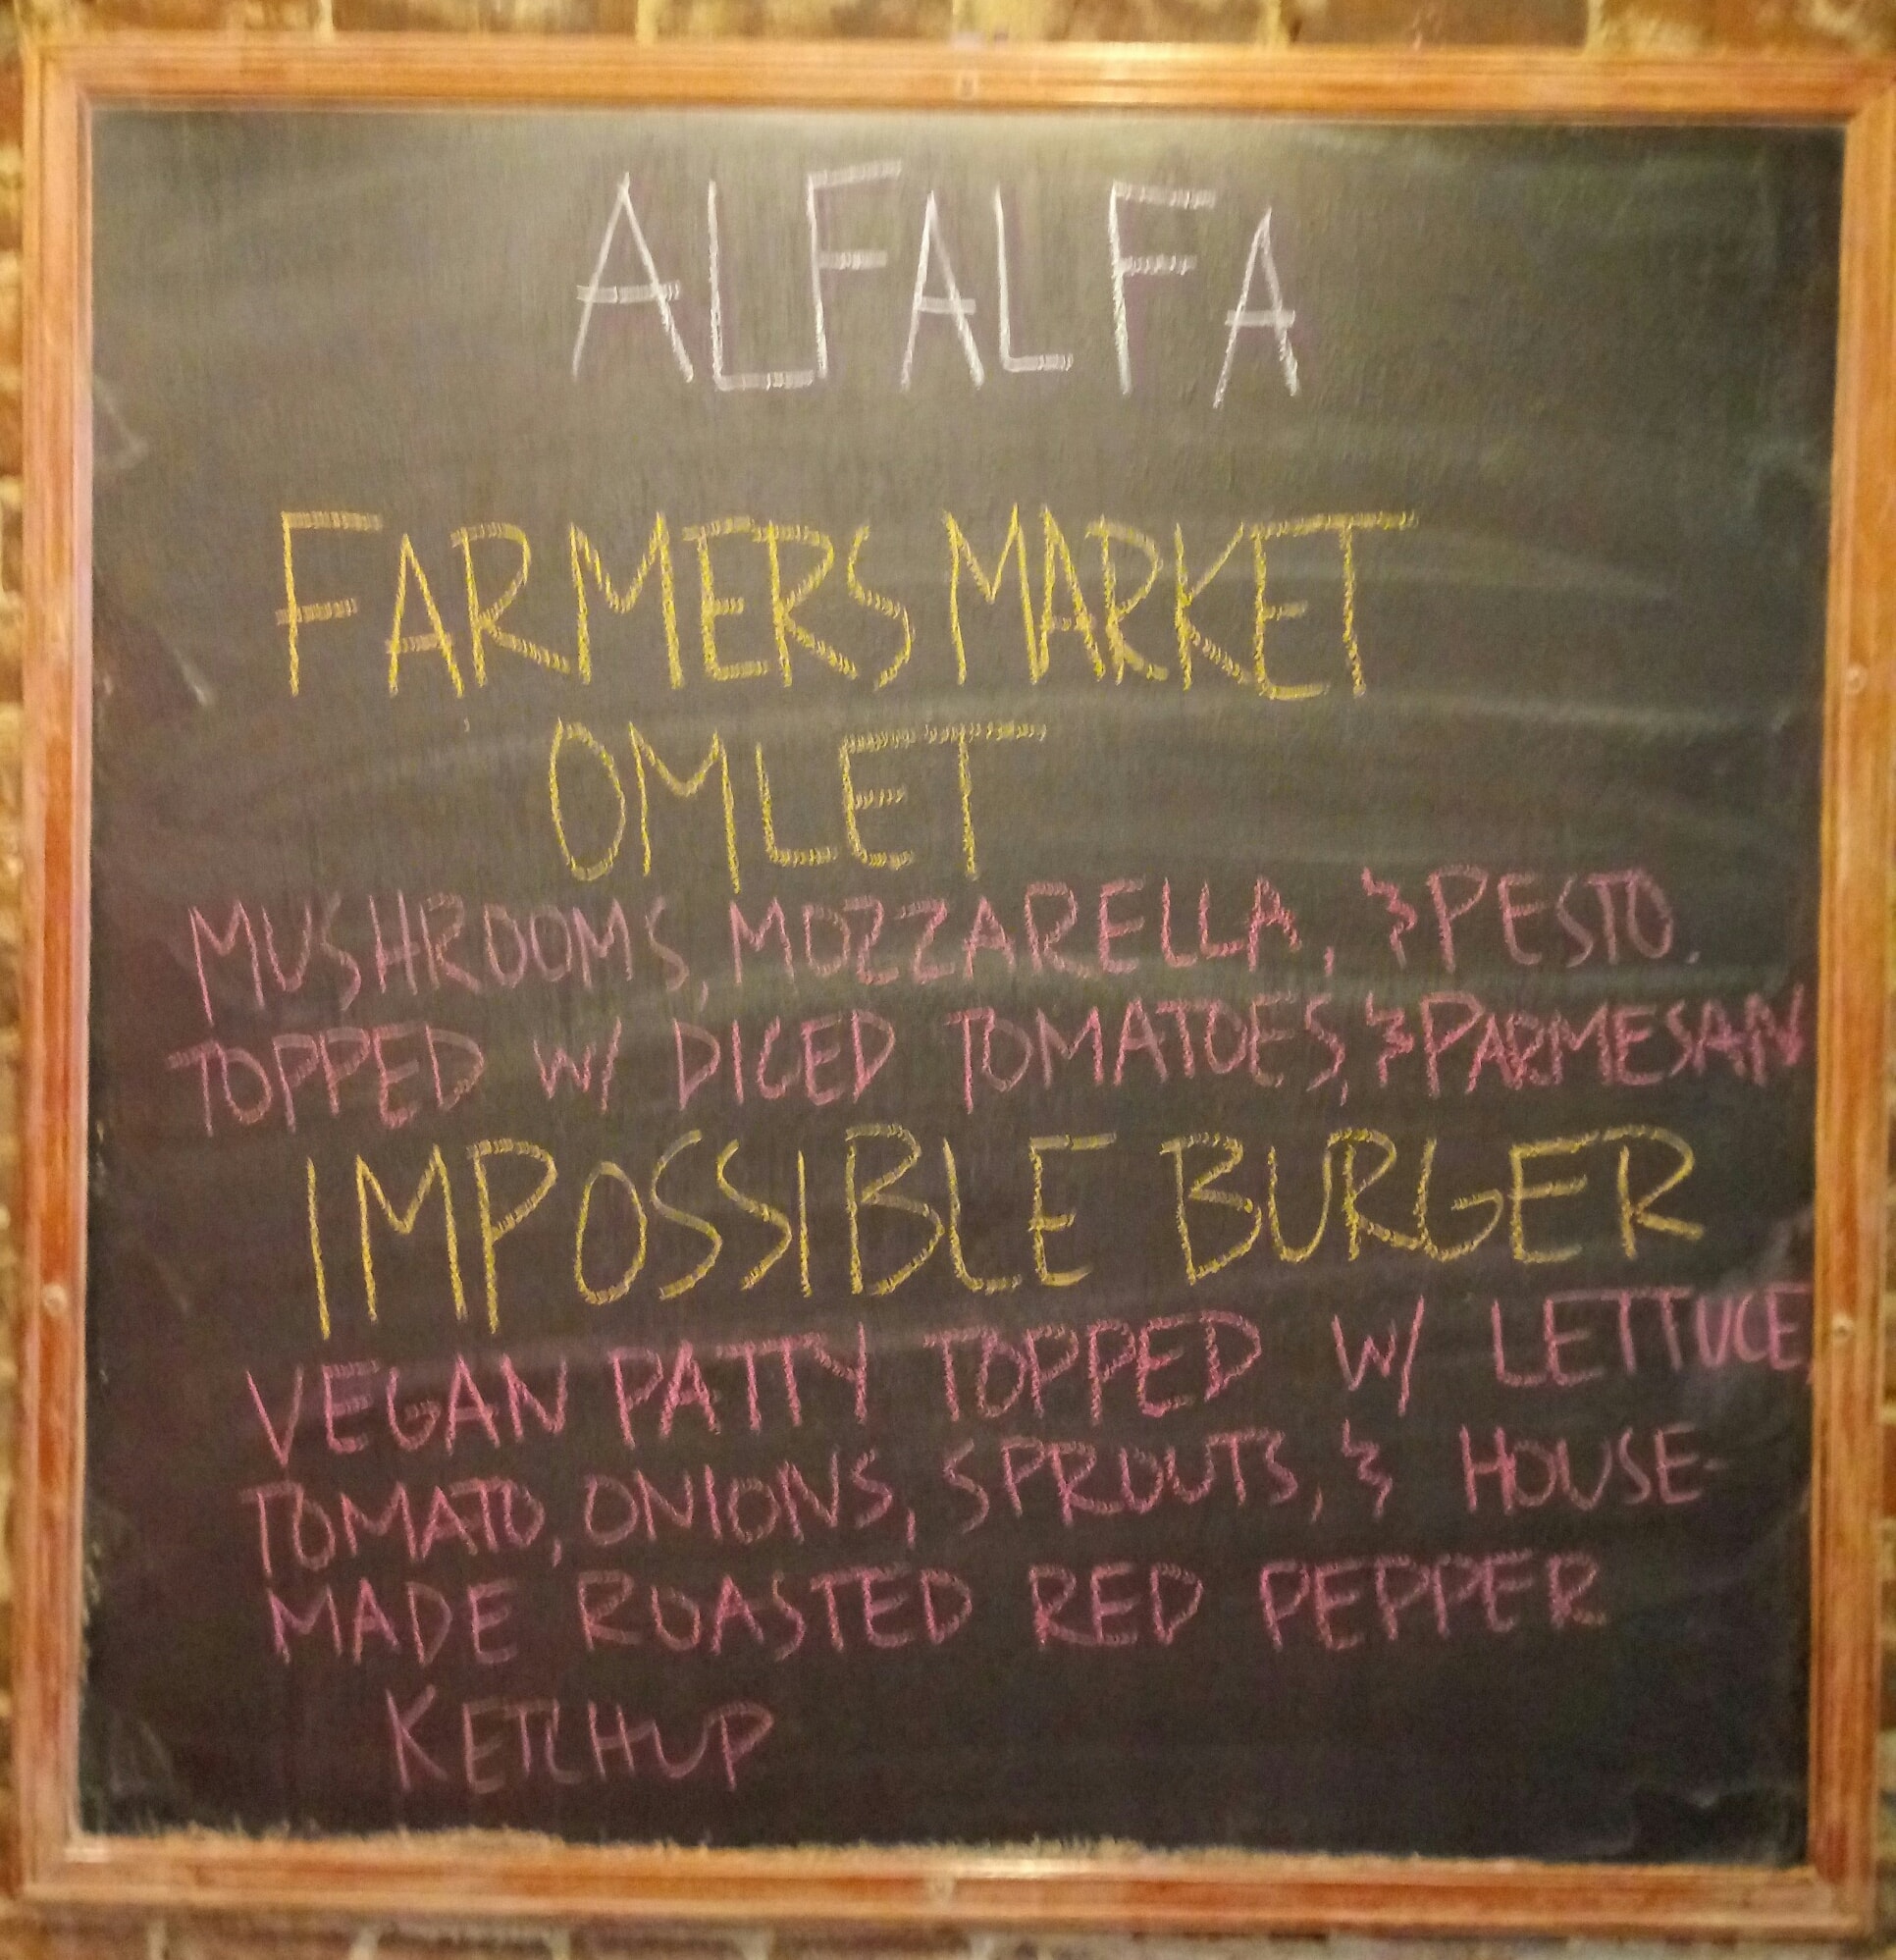 ALFALFA
FARMERS MARKET
OMLET
MUSHROOMS, MOZZARELLA, & PESTO.
TOPPED W/ DICED TOMATOES, & PARMESAN
IMPOSSIBLE BURGER
VEGAN PATTY TOPPED W/ LETTUCE,
TOMATO, ONIONS, SPROUTS, & HOUSE-
MADE ROASTED RED PEPPER
KETCHUP